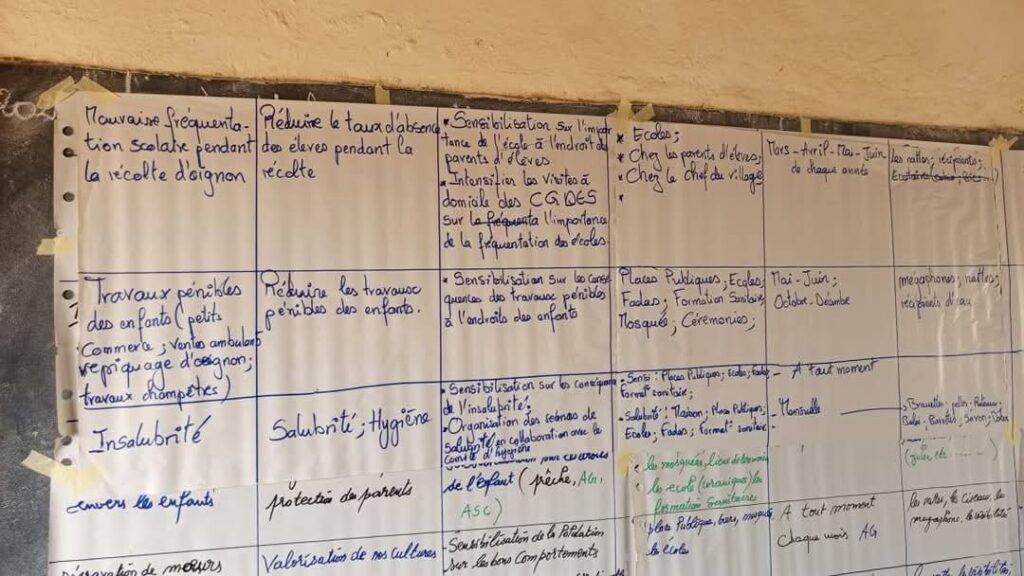 Mauvaise fréquenta-
tion scolaire pendant
la récolte d'oignon
Réduire le taux d'absence
des élèves pendant la
récolte
• Sensibilisation sur l'impor
tance de l'école à l'endroit des
parents d'élèves
• Intensifier les visites à
domicile des CGDES
sur la fréquenta l'importance
de la fréquentation des écoles.
* Ecoles;
* Chez les parents d'élèves;
* Chez le Chef du village
*
Mars - Avril - Mai - Juin
de chaque année
Les nattes; récipients;
Travaux pénibles
des enfants (petits
Commerce; ventes ambulant
repiquage d'oignon;
travaux champêtres)
Réduire les travaux
pénibles des enfants.
• Sensibilisation sur les consé
quences des travaux pénibles
à l'endroits des enfants
Places Publiques, Ecoles,
Fadas; Formation Sanitaire,
Mosquée; Cérémonies;
Mai - Juin;
Octobre - Décembre
mégaphones; nattes;
récipients d'eau
Insalubrité
Salubrité; Hygiène
• Sensibilisation sur les conséquence
de l'insalubrité;
• Organisation des séances de
Salubrité en collaboration avec le
Comité d'hygiène
- Sensi: Places Publiques; Ecoles; Fadas
Format° sanitaire;
- Salubrité: Maison; Place Publique,
Ecoles; Fadas; Format° sanitaire
- A tout moment
- Mensuelle
Balai - Savon
envers les enfants
protection des parents
de l'enfant (prêche, AG,
ASC)
• les mosquées, lieux de
• les école (coraniques) les
formation sanitaires
place Publique, mosquée
les écoles
A tout moment
chaque mois AG
mégaphone,
Dépravation de mœurs
Valorisation de nos cultures
Sensibilisation de la Population
sur les bons Comportements